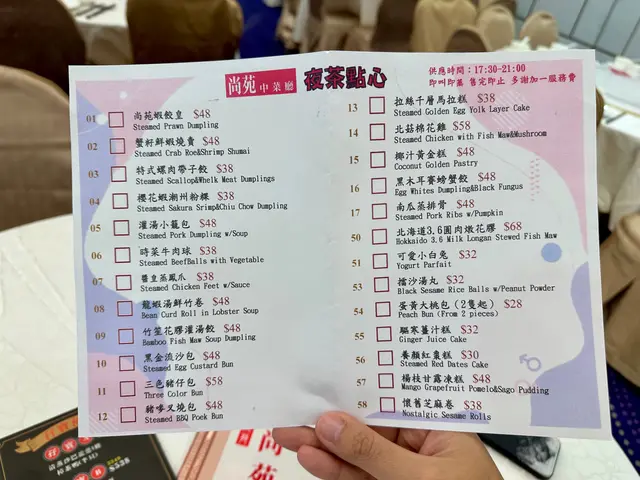 尚苑 中菜廳 夜茶點心
供應時間：17:30-21:00
即叫即蒸 售完即止 多謝加一服務費
01 尚苑蝦餃皇 $48
Steamed Prawn Dumpling
02 蟹籽鮮蝦燒賣 $48
Steamed Crab Roe&Shrimp Shumai
03 特式螺肉帶子餃 $38
Steamed Scallop&Whelk Meat Dumplings
04 櫻花蝦潮州粉粿 $38
Steamed Sakura Srimp&Chiu Chow Dumpling
05 灌湯小籠包 $48
Steamed Pork Dumpling w/Soup
06 時菜牛肉球 $38
Steamed BeefBalls with Vegetable
07 醬皇蒸鳳爪 $38
Steamed Chicken Feet w/Sauce
08 龍蝦湯鮮竹卷 $48
Bean Curd Roll in Lobster Soup
09 竹笙花膠灌湯餃 $48
Bamboo Fish Maw Soup Dumpling
10 黑金流沙包 $48
Steamed Egg Custard Bun
11 三色豬仔包 $58
Three Color Bun
12 豬嗲叉燒包 $48
Steamed BBQ Poek Bun
13 拉絲千層馬拉糕 $38
Steamed Golden Egg Yolk Layer Cake
14 北菇棉花雞 $58
Steamed Chicken with Fish Maw&Mushroom
15 椰汁黃金糕 $48
Coconut Golden Pastry
16 黑木耳賽螃蟹餃 $48
Egg Whites Dumpling&Black Fungus
17 南瓜蒸排骨 $48
Steamed Pork Ribs w/Pumpkin
50 北海道3.6圓肉燉花膠 $68
Hokkaido 3.6 Milk Longan Stewed Fish Maw
51 可愛小白兔 $32
Yogurt Parfait
53 擂沙湯丸 $32
Black Sesame Rice Balls w/Peanut Powder
54 蛋黃大桃包（2隻起） $28
Peach Bun (From 2 pieces)
55 驅寒薑汁糕 $32
Ginger Juice Cake
56 養顏紅棗糕 $30
Steamed Red Dates Cake
57 楊枝甘露凍糕 $48
Mango Grapefruit Pomelo&Sago Pudding
58 懷舊芝麻卷 $38
Nostalgic Sesame Rolls
尚苑